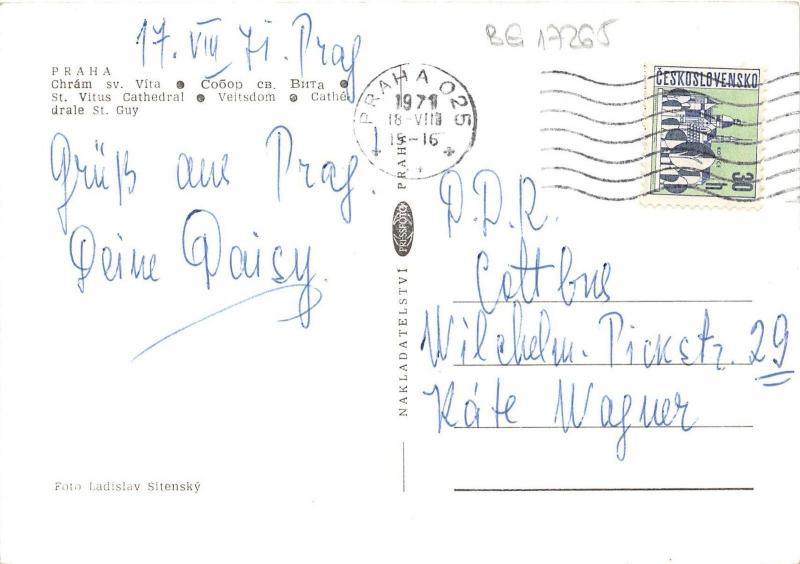 17. VIII 71. Prag
BG 17265
PRAHA
Chrám sv. Víta ● Собор св. Вита ●
St. Vitus Cathedral ● Veitsdom ● Cathé-
drale St. Guy
Grüß aus Prag.
Deine Daisy.
Foto Ladislav Sitenský
NAKLADATELSTVÍ PRESSFOTO PRAHA
PRAHA 025
1971
18-VIII
15-16
ČESKOSLOVENSKO
30 h
D.D.R.
Cottbus
Wilchelm-Pickstr. 29
Käte Wagner